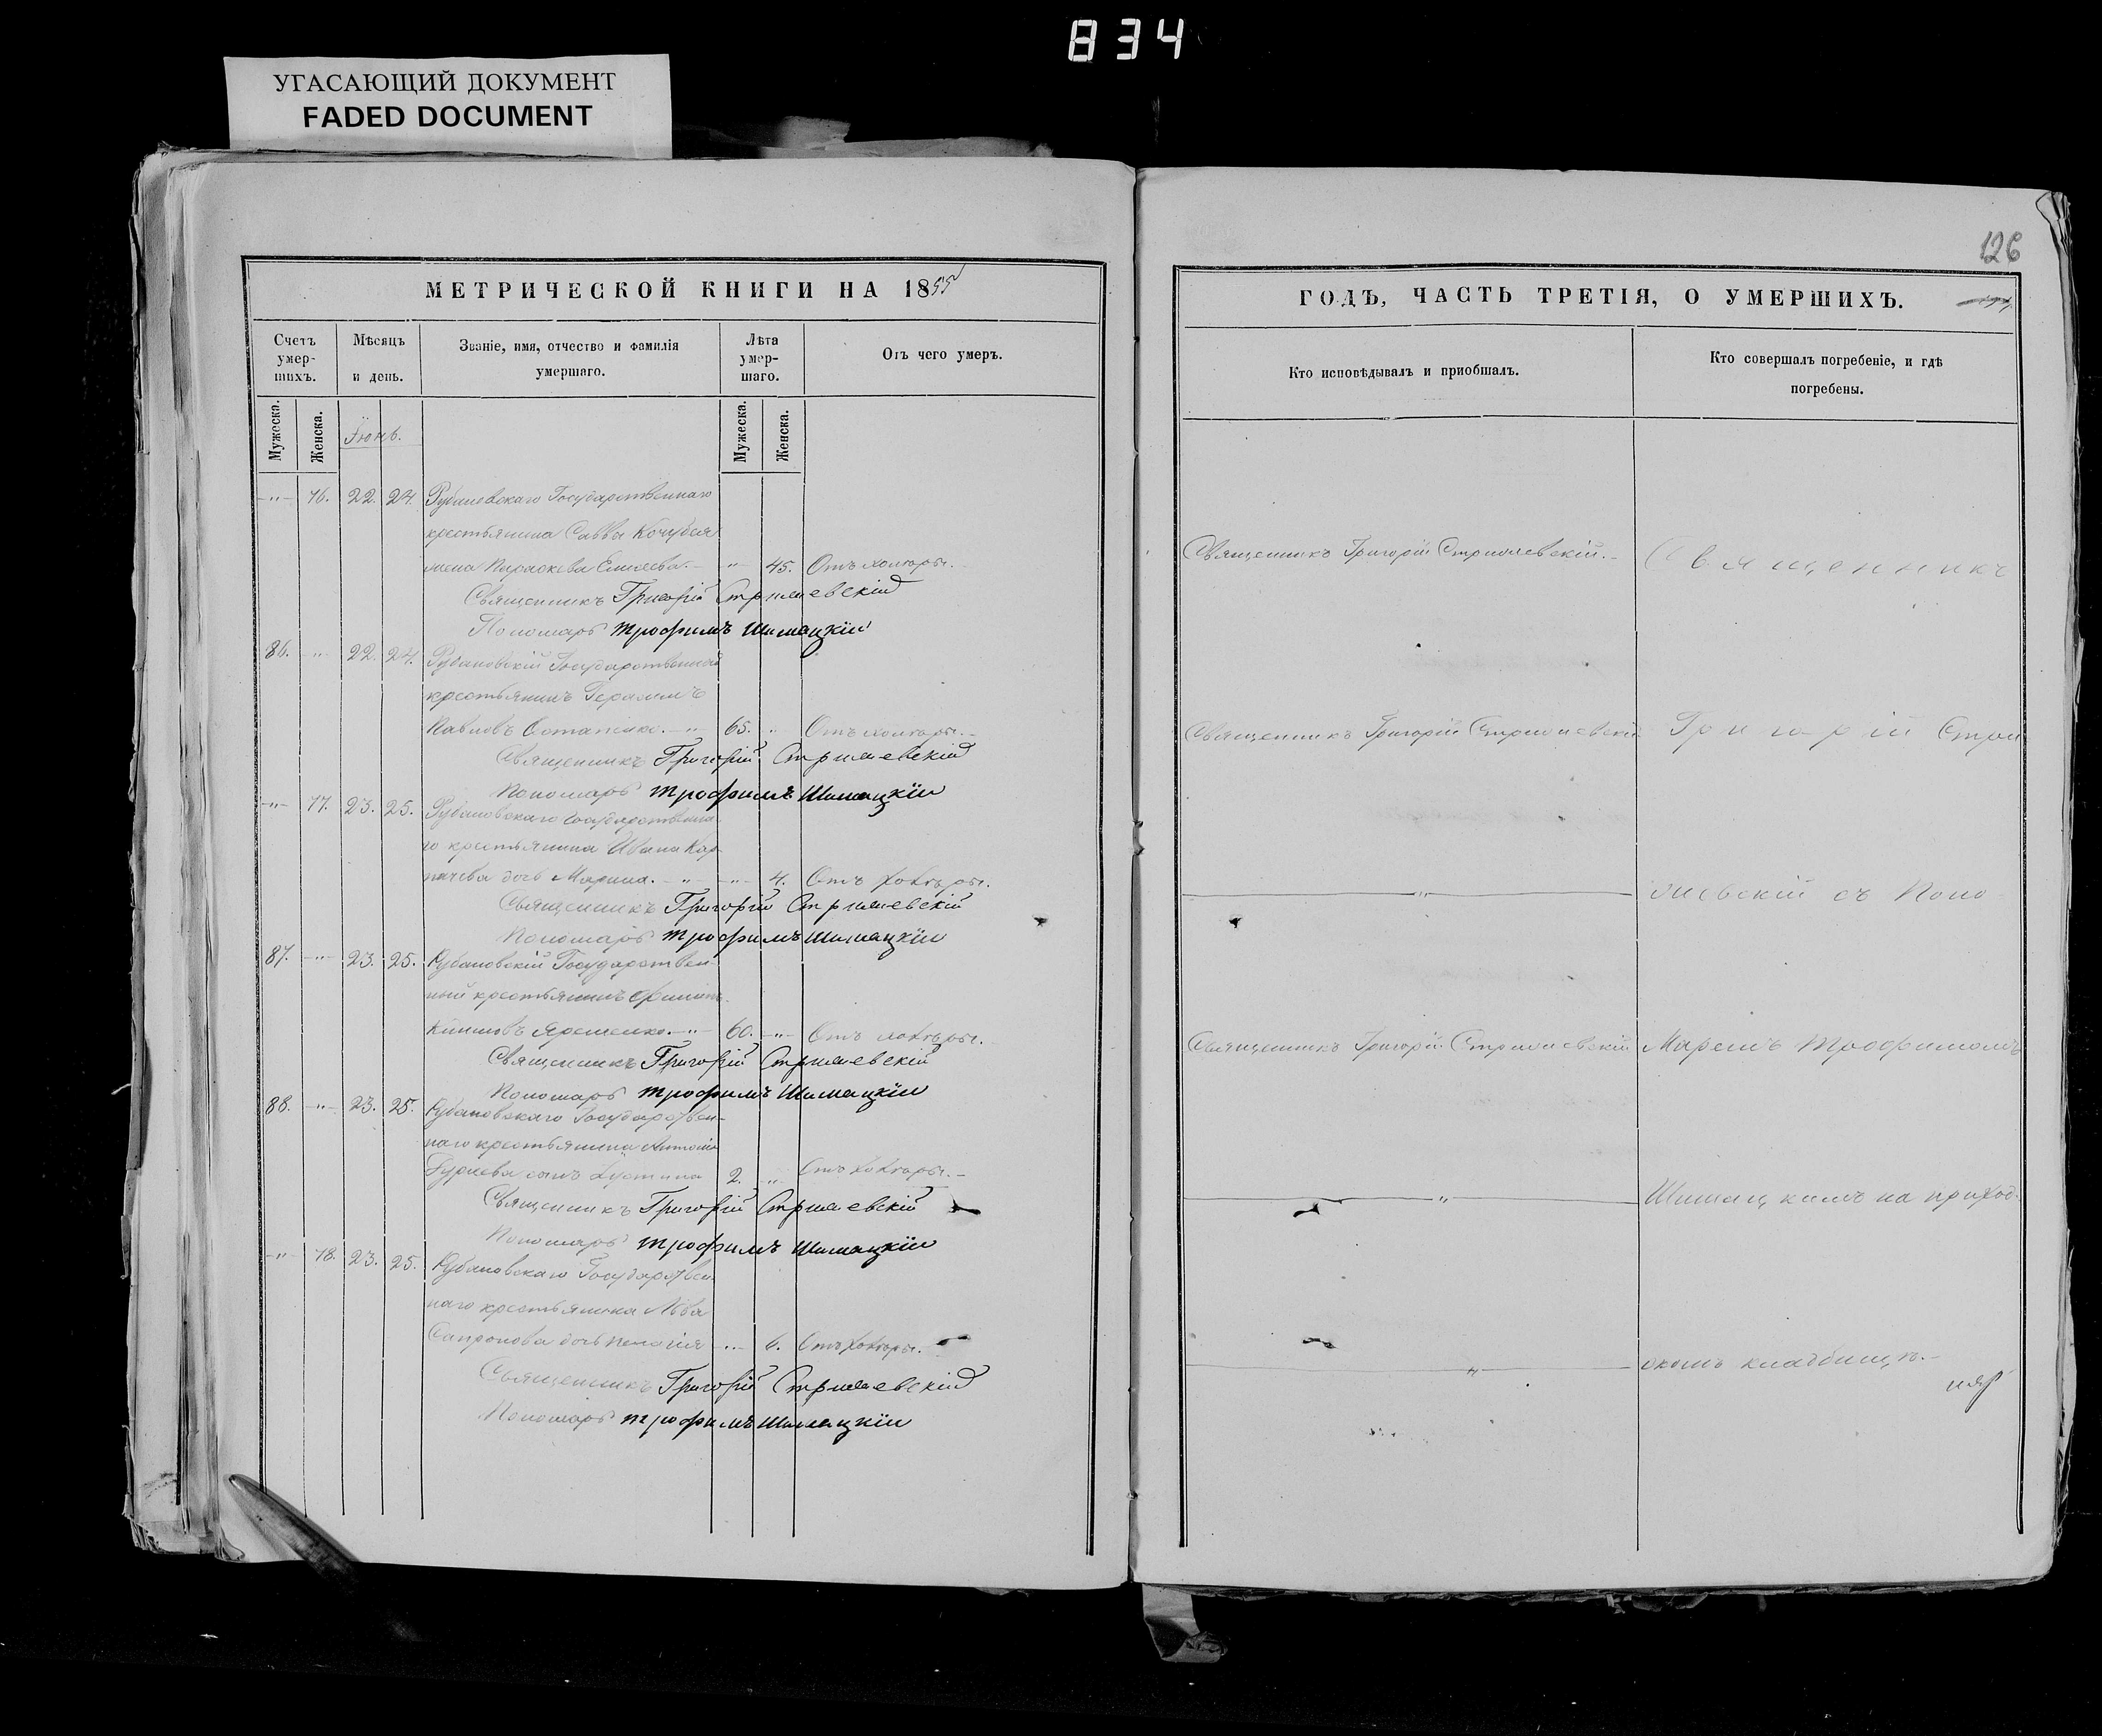 834
УГАСАЮЩИЙ ДОКУМЕНТ
FADED DOCUMENT
МЕТРИЧЕСКОЙ КНИГИ НА 1855
Счетъ умер-шихъ.
Мѣсяцъ и день.
Званіе, имя, отчество и фамилія умершаго.
Лѣта умер-шаго.
Отъ чего умеръ.
Мужеска.
Женска.
Іюнь.
Мужеска.
Женска.
-"- 76. 22. 24. Рубановскаго Государственнаго
крестьянина Саввы Кочубея
жена Параскева Елисеева. - " 45. Отъ холеры.
Священникъ Григорій Стришевскій
Пономарь Трофимъ Шишацкій
86. -"- 22. 24. Рубановскій Государственный
крестьянинъ Герасимъ
Павловъ Остапенко. -"- 65. " Отъ холеры.
Священникъ Григорій Стришевскій
Пономарь Трофимъ Шишацкій
-"- 77. 23. 25. Рубановскаго Государственна-
го крестьянина Ивана Кар-
пачева дочь Марина. -"- -"- 4. Отъ холеры.
Священникъ Григорій Стришевскій
Пономарь Трофимъ Шишацкій
87. -"- 23. 25. Рубановскій Государствен-
ный крестьянинъ Филипъ
Яременко. -"- 60. -"- Отъ холеры.
Священникъ Григорій Стришевскій
Пономарь Трофимъ Шишацкій
88. -"- 23. 25. Рубановскаго Государствен-
наго крестьянина Антонія
сынъ 2. " Отъ холеры.
Священникъ Григорій Стришевскій
Пономарь Трофимъ Шишацкій
-"- 78. 23. 25. Рубановскаго Государствен-
наго крестьянина Льва
Сапронова дочь Пелагія -"- 6. Отъ холеры.
Священникъ Григорій Стришевскій
Пономарь Трофимъ Шишацкій
126
ГОДЪ, ЧАСТЬ ТРЕТІЯ, О УМЕРШИХЪ.
Кто исповѣдывалъ и пріобщалъ.
Кто совершалъ погребеніе, и гдѣ погребены.
Священникъ Григорій Стришевскій. Священникъ
Священникъ Григорій Стришевскій Григорій Стри
" шевскій съ Поно
Священникъ Григорій Стришевскій Маремъ Трофимомъ
" Шишацкимъ на приход
" скомъ кладбищѣ.